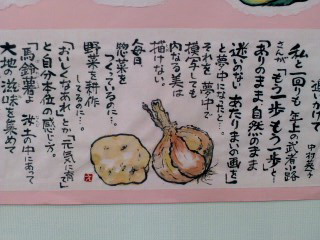 追いかけて
中村英子
私と一回りも年上の武者小路
さんが「もう一歩もう一歩と
「ありのまま、自然のまま
迷いのない、あたりまいの画を」
と夢中になったと…
それを夢中で
模写しても
内なる美は
描けない。
毎日
惣菜を
「つくっているのに…。
野菜を耕作
しているのに…。
「おいしくなあれ」とか「元気に育て」
と自分本位の感じ方。
「馬鈴薯よ
の中にあって
大地の滋味を集めて